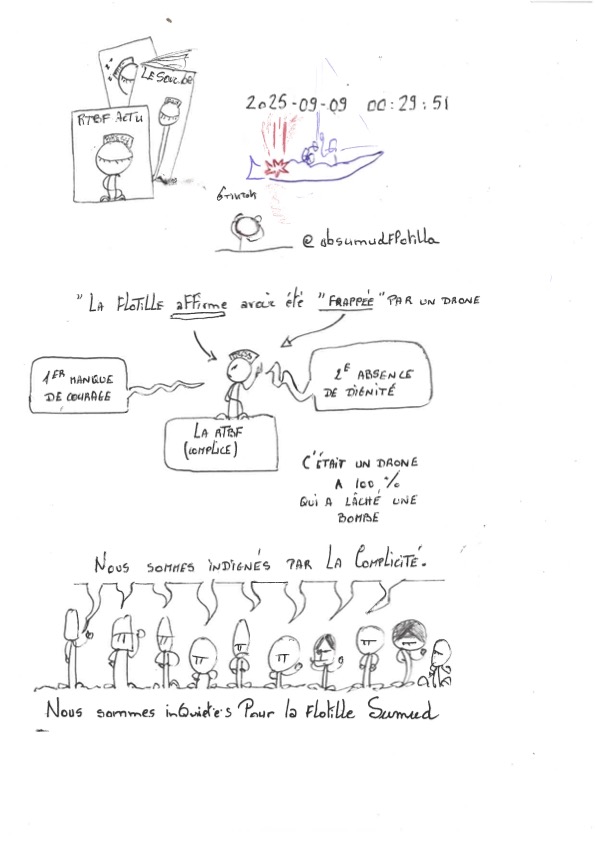 LE SOIR.be
RTBF ACTU
2025-09-09 00:29:51
@absumudFlotilla
"LA FLOTILLE affirme avoir été "FRAPPÉE" PAR UN DRONE
PRESS
1ER MANQUE
DE COURAGE
2E ABSENCE
DE DIGNITÉ
LA RTBF
(COMPLICE)
C'ÉTAIT UN DRONE
A 100 %
QUI A LÂCHÉ UNE
BOMBE
NOUS SOMMES INDIGNÉS PAR LA COMPLICITÉ.
Nous sommes inQuiétés Pour la Flotille Sumud